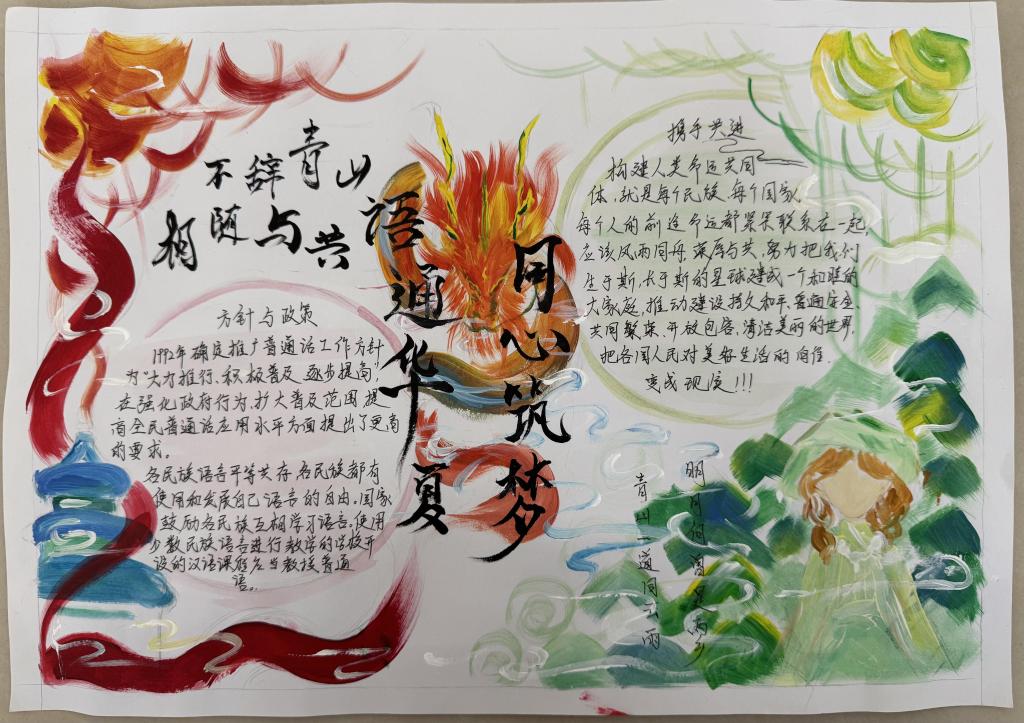 不辞青山
相随与共
语通华夏
同心筑梦
方针与政策
1992年确定推广普通话工作方针
为"大力推行、积极普及、逐步提高;
在强化政府行为,扩大普及范围,提
高全民普通话应用水平方面提出了更高
的要求。
各民族语言平等共存,各民族都有
使用和发展自己语言的自由,国家
鼓励各民族互相学习语言,使用
少数民族语言进行教学的学校开
设的汉语课程应当教授普通
语。
携手共进
构建人类命运共同
体,就是每个民族、每个国家、
每个人的前途命运都紧紧联系在一起,
应该风雨同舟,荣辱与共,努力把我们
生于斯、长于斯的星球建成一个和睦的
大家庭,推动建设持久和平、普遍安全、
共同繁荣、开放包容、清洁美丽的世界,
把各国人民对美好生活的向往
变成现实!!!
青山一道同云雨
明月何曾是两乡